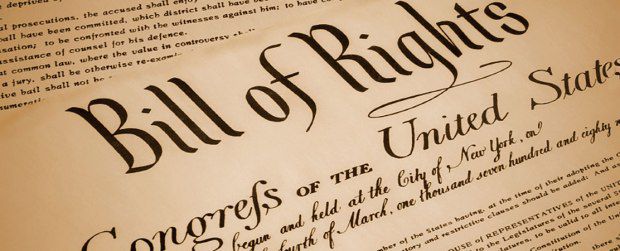 deprived of
al prosecutions, the accused shall enjoy
all have been committed, which district shall have been
sation; to be confronted with the witnesses against him; to have com
assistance of counsel for his defence.
t common law, where the value in controversy shall
a jury, shall be otherwise re-exam
ive bail shall not be
enumerati
Bill of Rights
Congreſs OF THE United States
begun and held at the City of New York, on
fourth of March, one thousand seven hundred and eighty n
mber of the States having, at the time of their adopting the C
ry and restrictive clauses should be added: And as
SE OF REPRESENTATIVES OF THE UNITED
the Legislatures of the several S
to be valid to all int